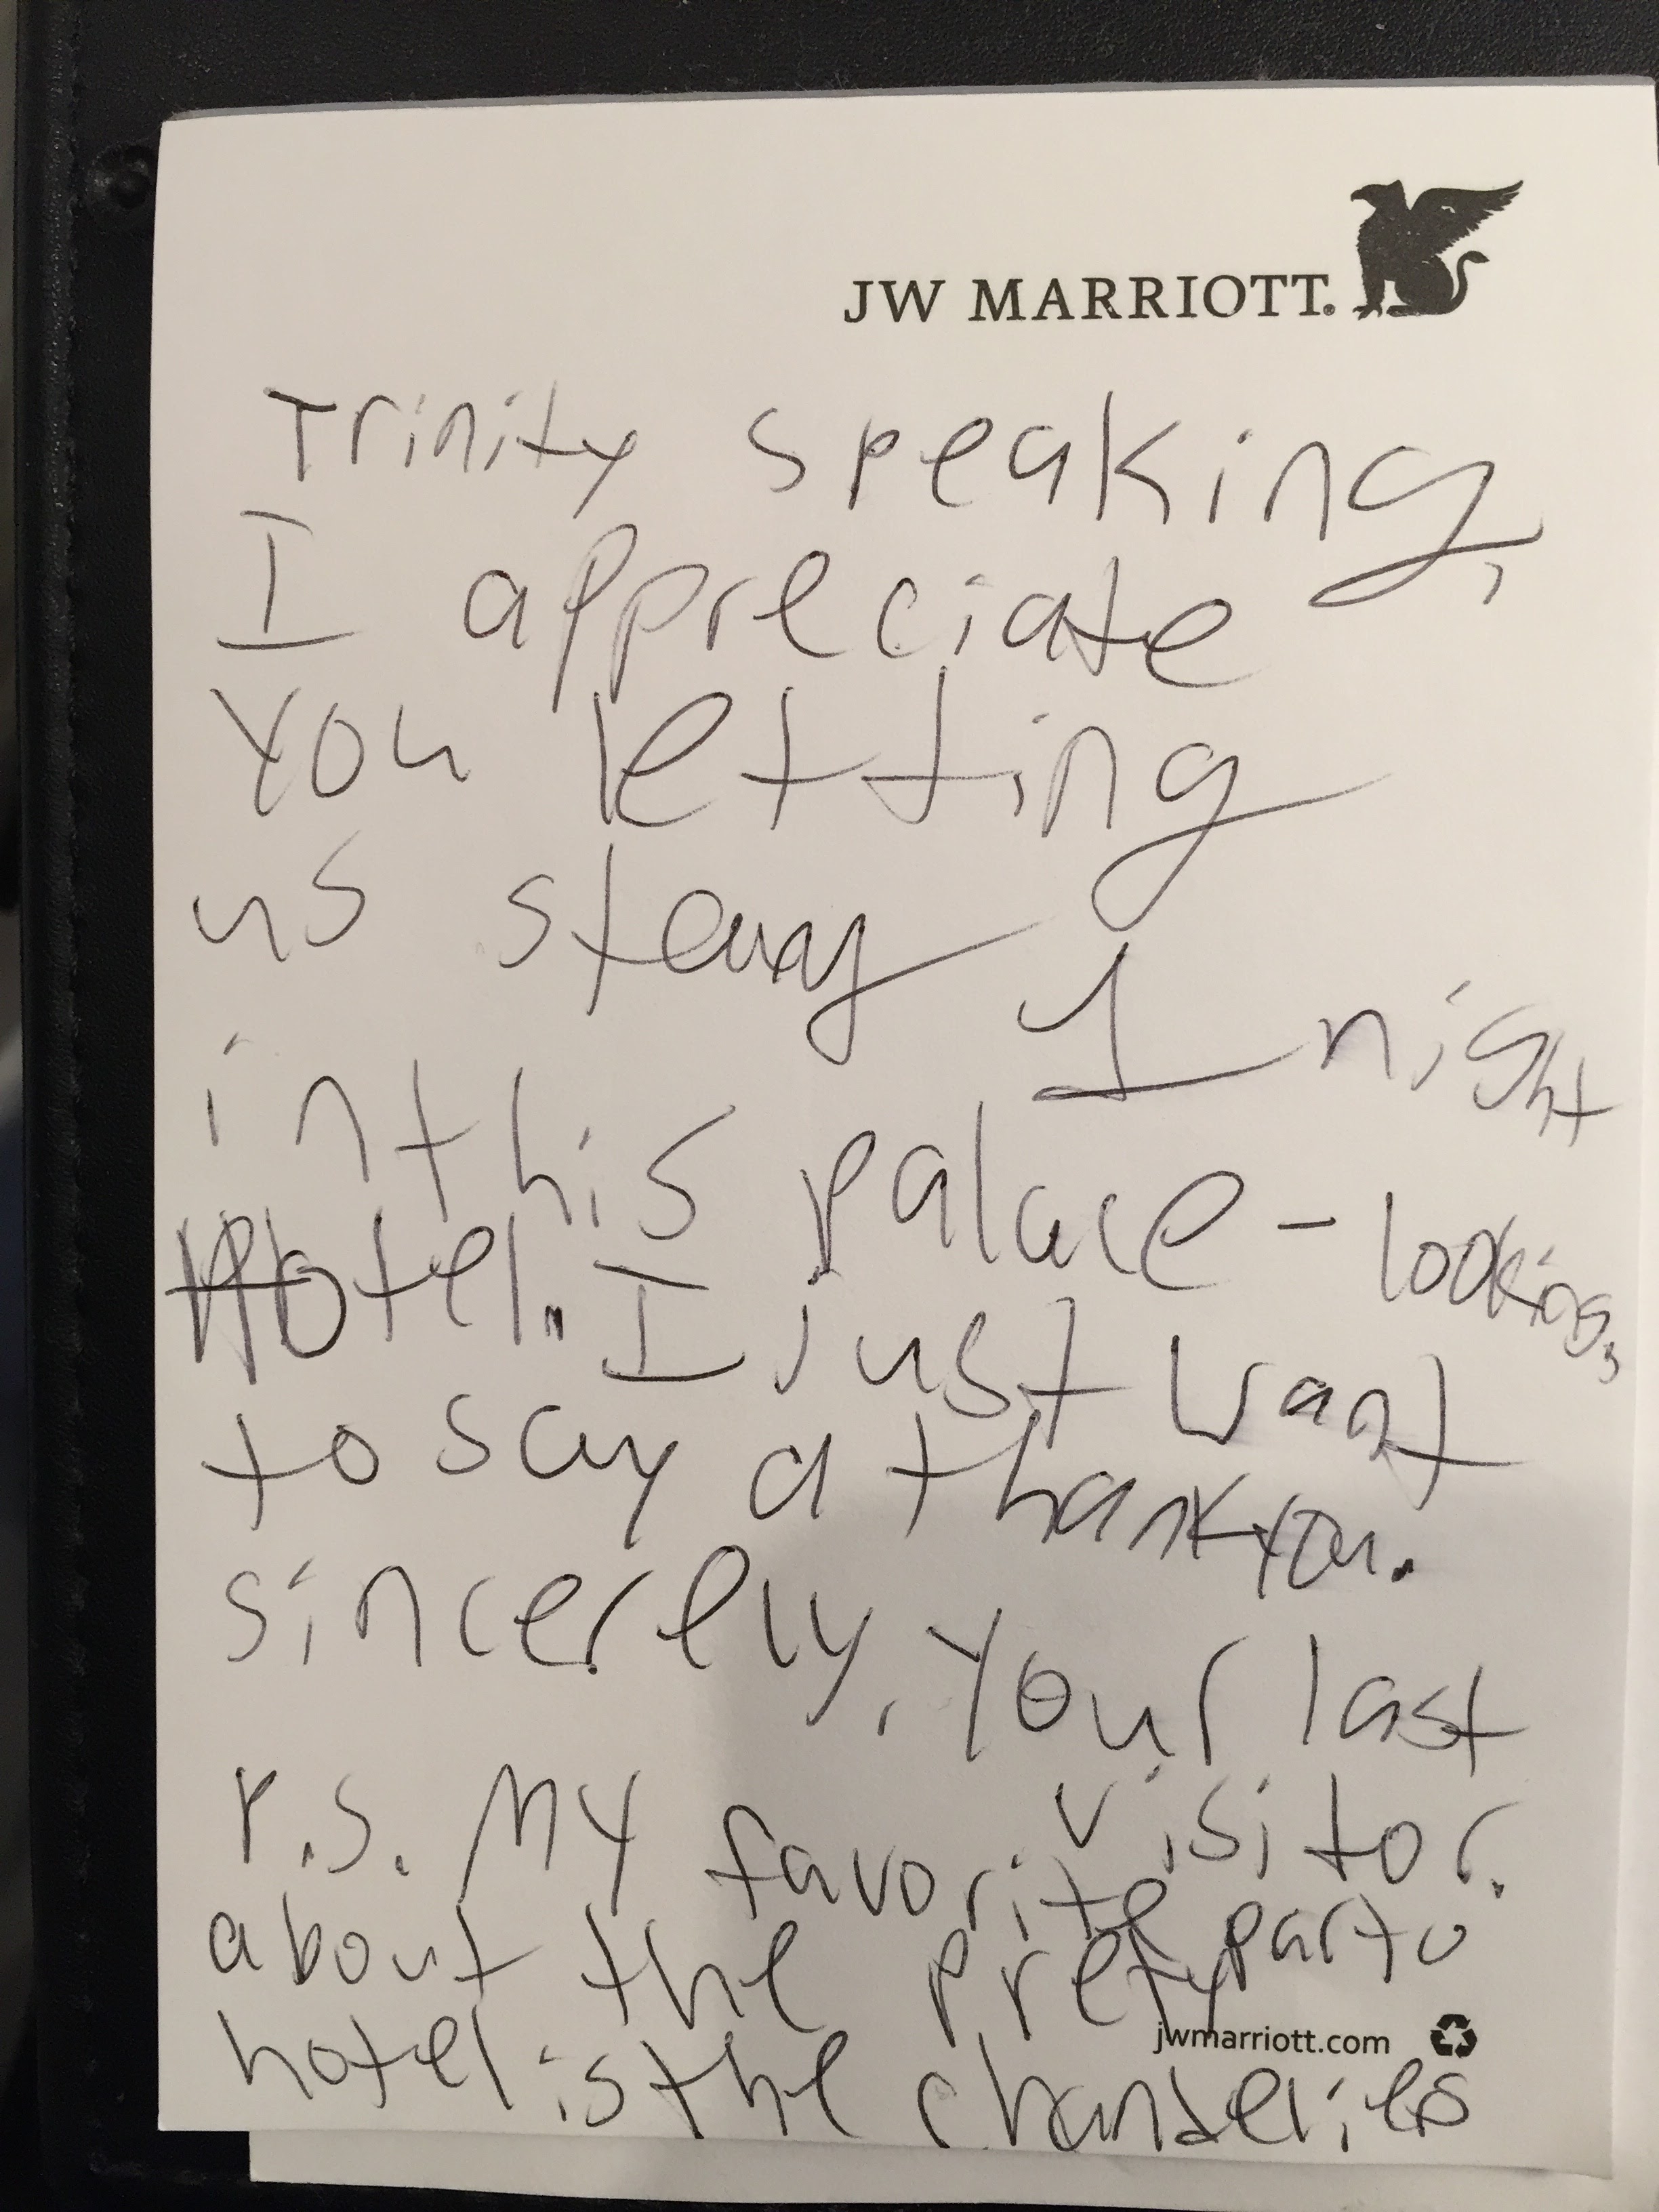 JW MARRIOTT®
Trinity speaking,
I appreciate
you letting
us stay 1 night
in this palace-looking,
Hotel. I just want
to say a thankyou.
sincerely, your last
visitor.
P.S. My favorite part o
about the prety
hotel is the chanderlies
jwmarriott.com